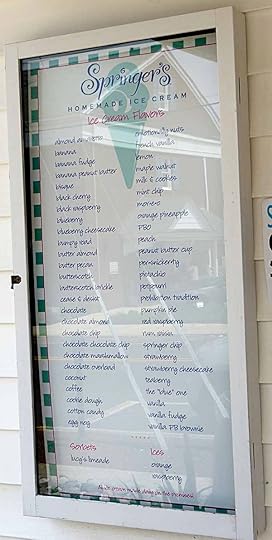 Springer's
HOMEMADE ICE CREAM
Ice Cream Flavors
almond amaretto
banana
banana fudge
banana peanut butter
bisque
black cherry
black raspberry
blueberry
blueberry cheesecake
bumpy road
butter almond
butter pecan
butterscotch
butterscotch brickle
cease & desist
chocolate
chocolate almond
chocolate chip
chocolate chocolate chip
chocolate marshmallow
chocolate overload
coconut
coffee
cookie dough
cotton candy
egg nog
Sorbets
lucy's limeade
nuts
french vanilla
lemon
maple walnut
milk & cookies
mint chip
orange pineapple
PBO
peach
peanut butter cup
persnickerity
pistachio
potpourri
prohibition tradition
pumpkin pie
red raspberry
rum raisin
springer chip
strawberry
strawberry cheesecake
teaberry
the "dixie" one
vanilla
vanilla fudge
vanilla PB brownie
Ices
orange
raspberry
made daily on the premises!